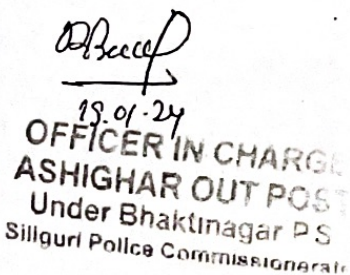 19.01.24
OFFICER IN CHARGE
ASHIGHAR OUT POST
Under Bhaktinagar P S
Siliguri Police Commissionerate